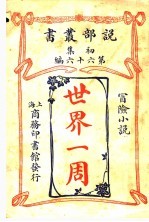 說部叢書
初集
第六十六編
冒險小說
世界一周
上海
商務印書館發行